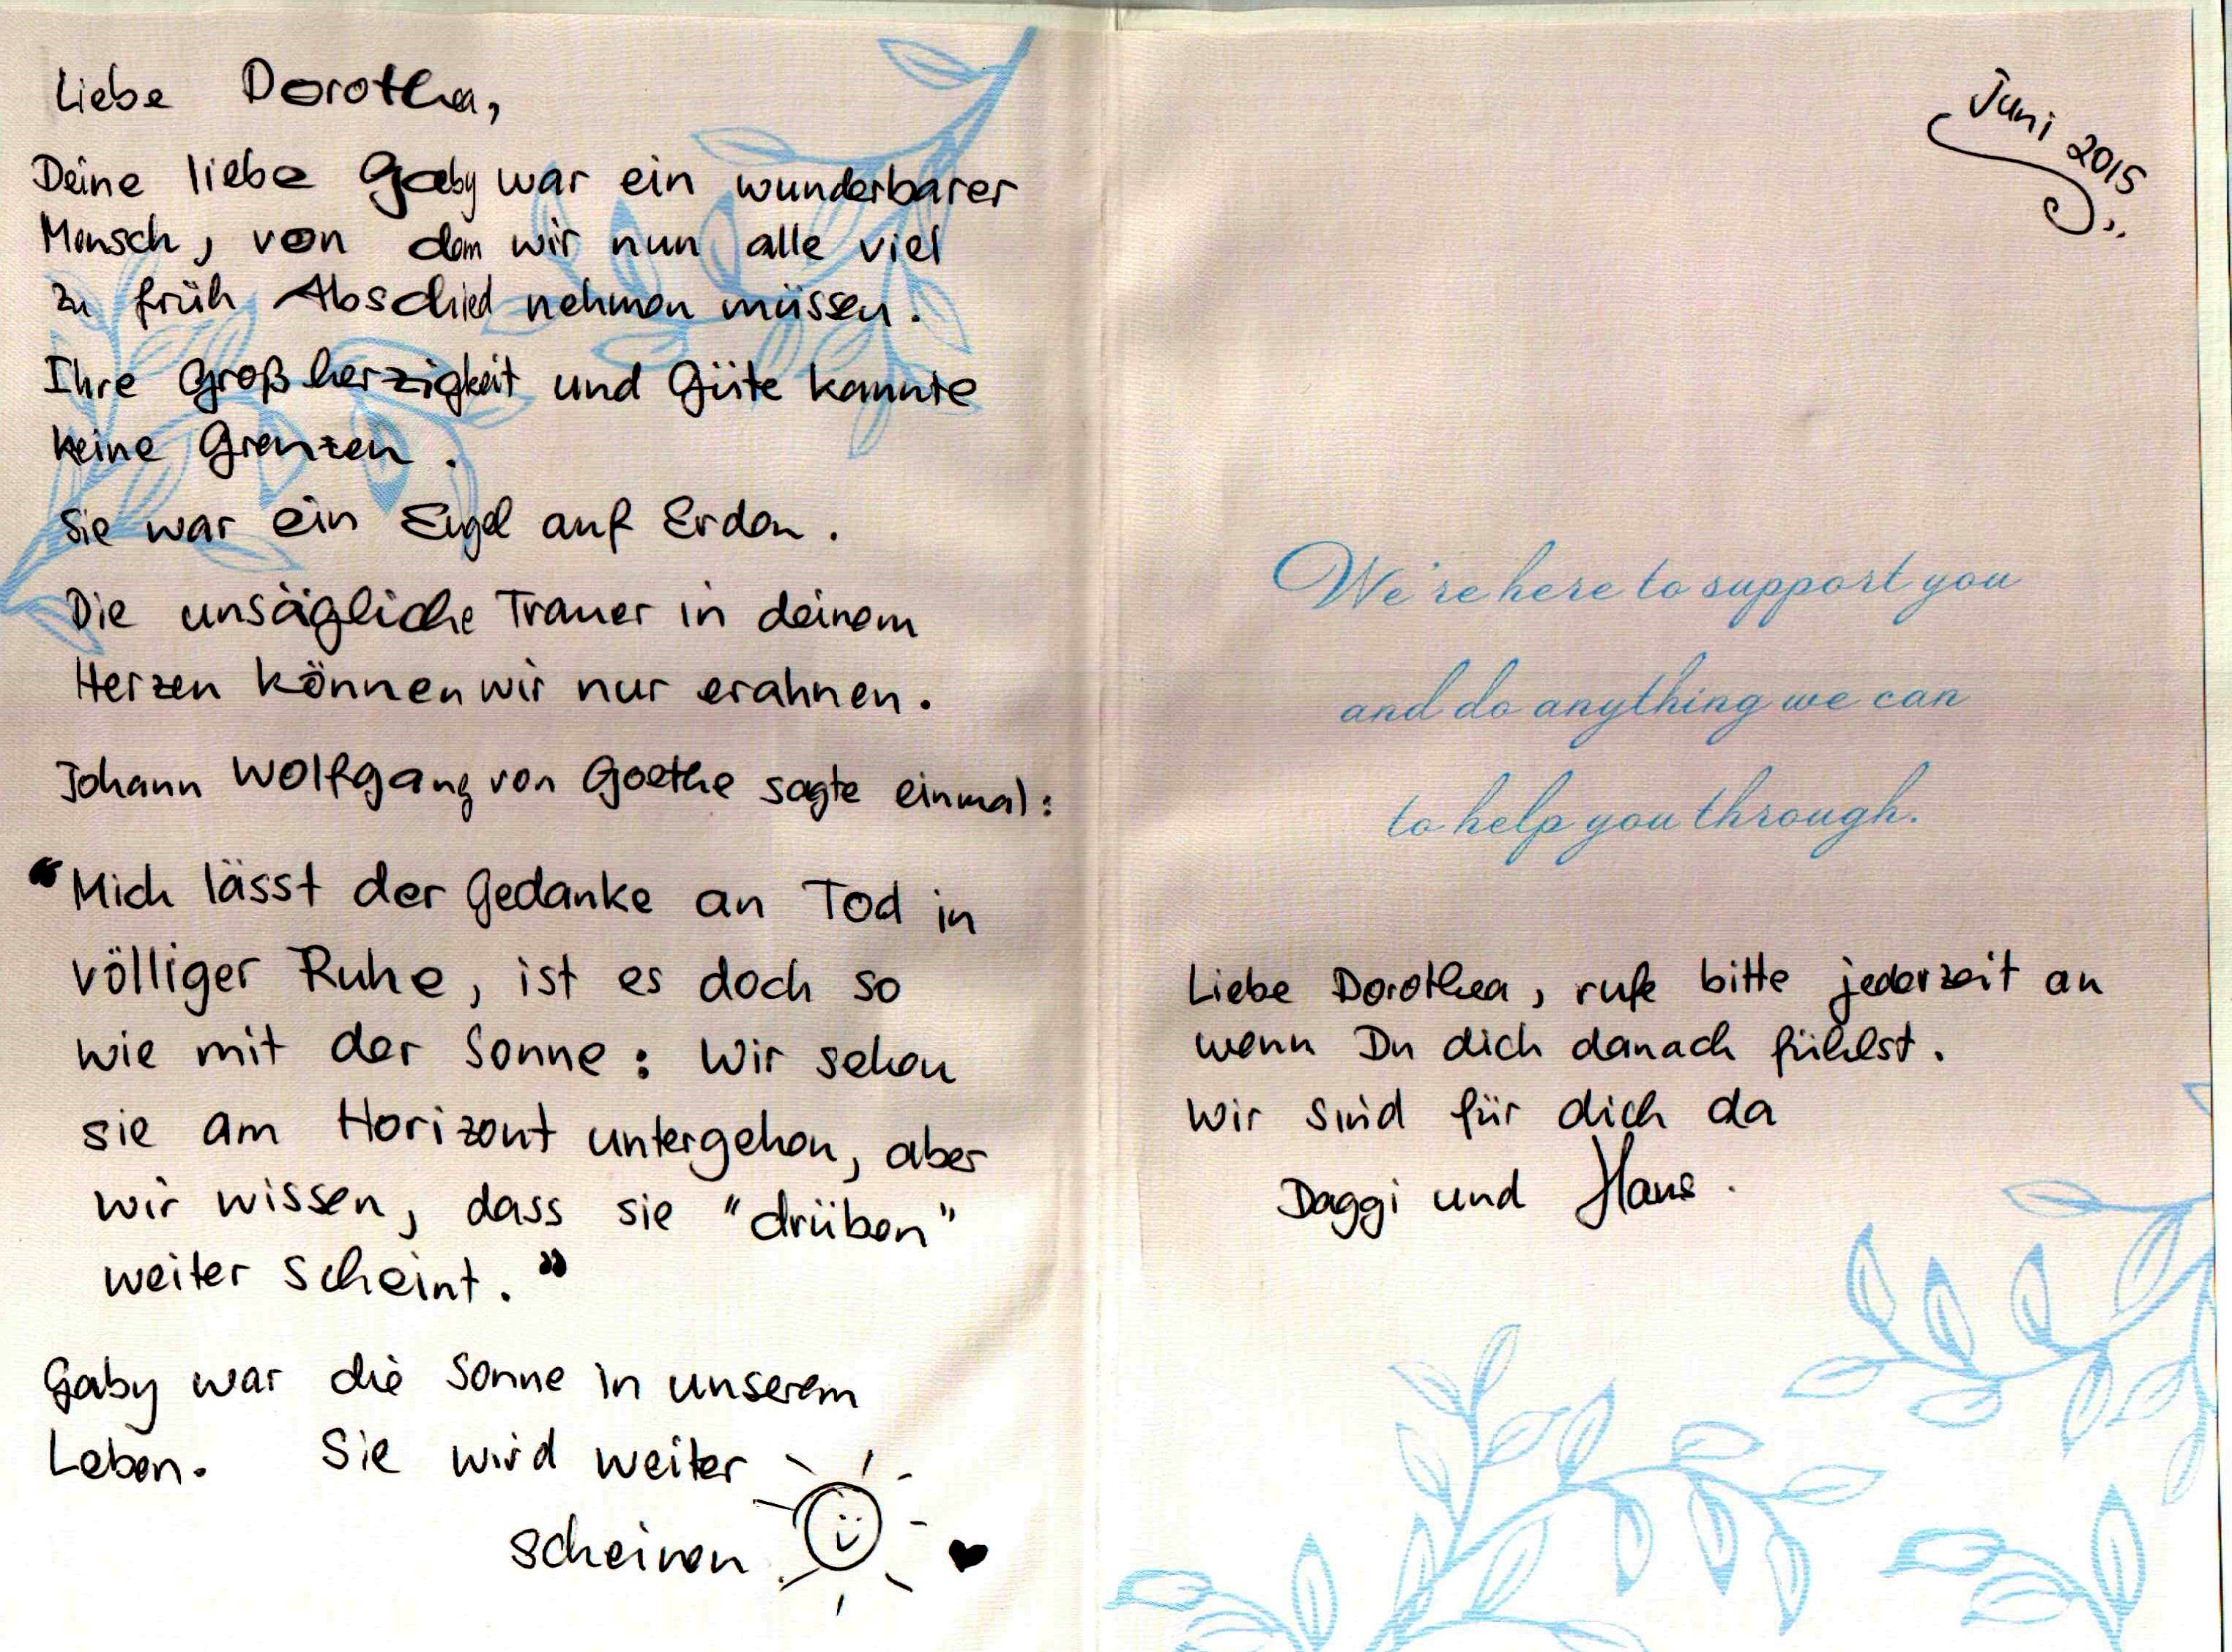 Liebe Dorothea,
Deine liebe Gaby war ein wunderbarer
Mensch, von dem wir nun alle viel
zu früh Abschied nehmen müssen.
Ihre Großherzigkeit und Güte kannte
keine Grenzen.
Sie war ein Engel auf Erden.
Die unsägliche Trauer in deinem
Herzen können wir nur erahnen.
Johann Wolfgang von Goethe sagte einmal:
"Mich lässt der Gedanke an Tod in
völliger Ruhe, ist es doch so
wie mit der Sonne: Wir sehen
sie am Horizont untergehen, aber
wir wissen, dass sie "drüben"
weiter scheint."
Gaby war die Sonne in unserem
Leben. Sie wird weiter
scheinen
Juni 2015
We're here to support you
and do anything we can
to help you through.
Liebe Dorothea, rufe bitte jederzeit an
wenn Du dich danach fühlst.
Wir sind für dich da
Daggi und Hans.